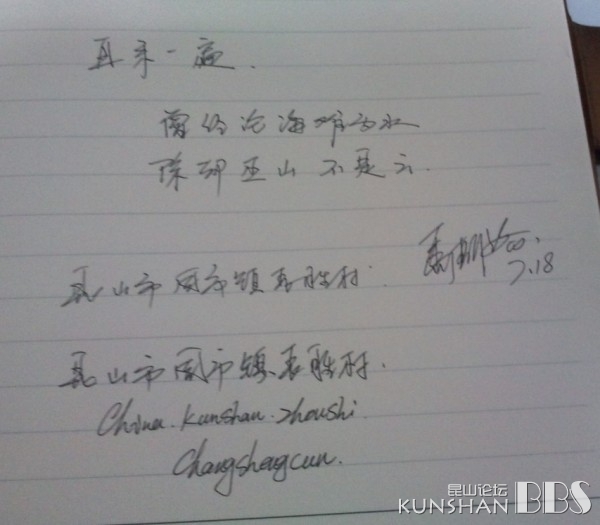 再来一遍.
曾经沧海难为水
除却巫山不是云.
7.18
昆山市周市镇长胜村.
昆山市周市镇长胜村.
China.Kunshan.Zhoushi.
Changshengcun.
昆山论坛
KUNSHAN BBS